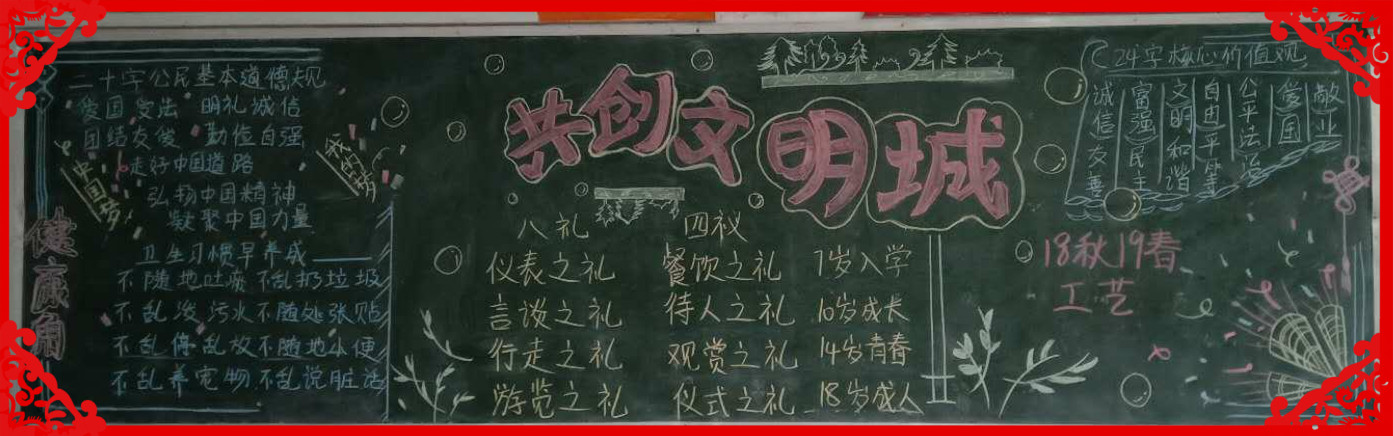 二十字公民基本道德规
爱国守法 明礼诚信
团结友爱 勤俭自强
走好中国道路
弘扬中国精神
凝聚中国力量
中国梦
我的梦
健康角
卫生习惯早养成
不随地吐痰 不乱扔垃圾
不乱泼污水 不随处张贴
不乱停乱放 不随地小便
不乱养宠物 不乱说脏话
共创文明城
八礼 四仪
仪表之礼 餐饮之礼 7岁入学
言谈之礼 待人之礼 10岁成长
行走之礼 观赏之礼 14岁青春
游览之礼 仪式之礼 18岁成人
24字核心价值观
诚信友善
富强民主
文明和谐
自由平等
公平法治
爱国
敬业
18秋19春
工艺